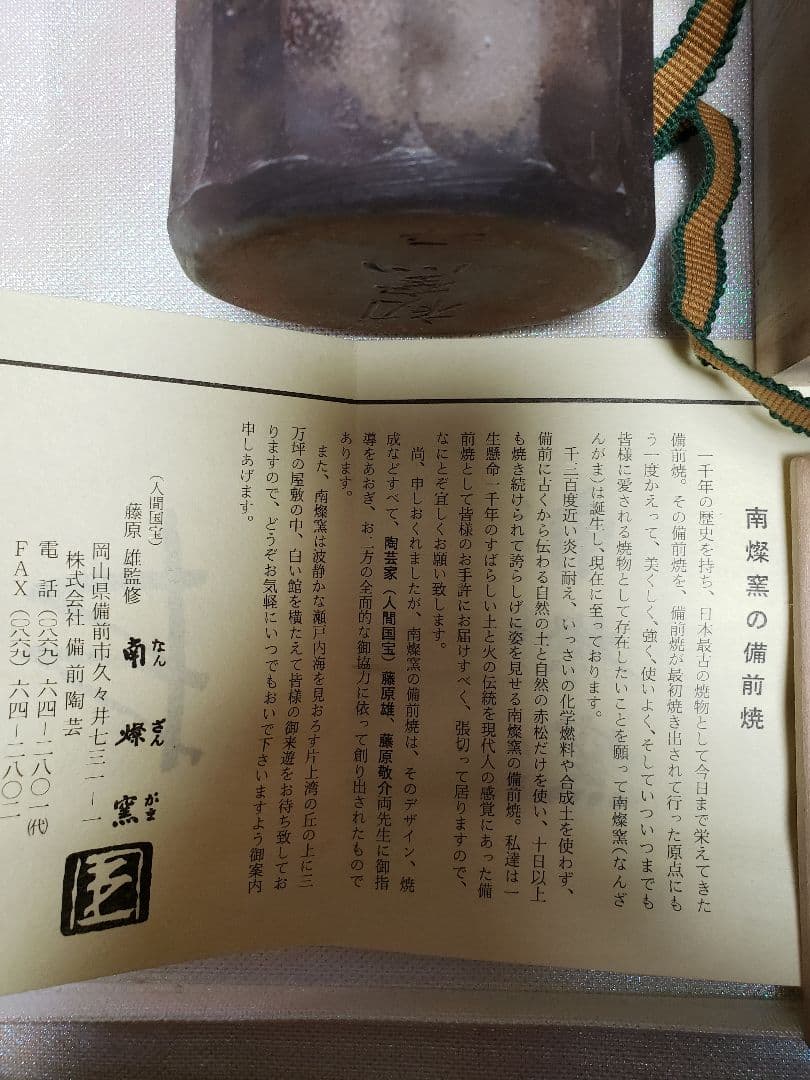 南燦窯の備前焼
一千年の歴史を持ち、日本最古の焼物として今日まで栄えてきた
備前焼。その備前焼を、備前焼が最初焼き出されて行った原点にも
う一度かえって、美くしく、強く、使いよく、そしていついつまでも
皆様に愛される焼物として存在したいことを願って南燦窯(なんざ
んがま)は誕生し、現在に至っております。
千三百度近い炎に耐え、いっさいの化学燃料や合成土を使わず、
備前に古くから伝わる自然の土と自然の赤松だけを使い、十日以上
も焼き続けられて誇らしげに姿を見せる南燦窯の備前焼。私達は一
生懸命一千年のすばらしい土と火の伝統を現代人の感覚にあった備
前焼として皆様のお手許にお届けすべく、張切って居りますので、
なにとぞ宜しくお願い致します。
尚、申しおくれましたが、南燦窯の備前焼は、そのデザイン、焼
成などすべて、陶芸家(人間国宝)藤原雄、藤原敬介両先生に御指
導をあおぎ、お二方の全面的な御協力に依って創り出されたもので
あります。
また、南燦窯は波静かな瀬戸内海を見おろす片上湾の丘の上に三
万坪の屋敷の中、白い館を横たえて皆様の御来遊をお待ち致してお
りますので、どうぞお気軽にいつでもおいで下さいますよう御案内
申しあげます。
(人間国宝)
藤原 雄監修 南燦窯
なん ざん がま
岡山県備前市久々井七三一ー一
株式会社 備前陶芸
電話(〇八六九)六四ー二八〇一(代)
FAX(〇八六九)六四ー二八〇二